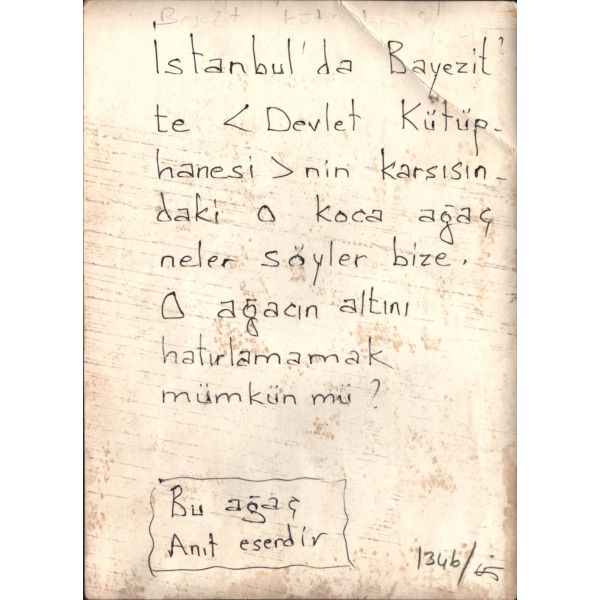 Bayezit
Istanbul'da Bayezit'
te < Devlet Kütüp-
hanesi > nin karsısın-
daki o koca ağaç
neler söyler bize.
O ağacın altını
hatırlamamak
mümkün mü?
Bu ağaç
Anıt eserdir
1346/